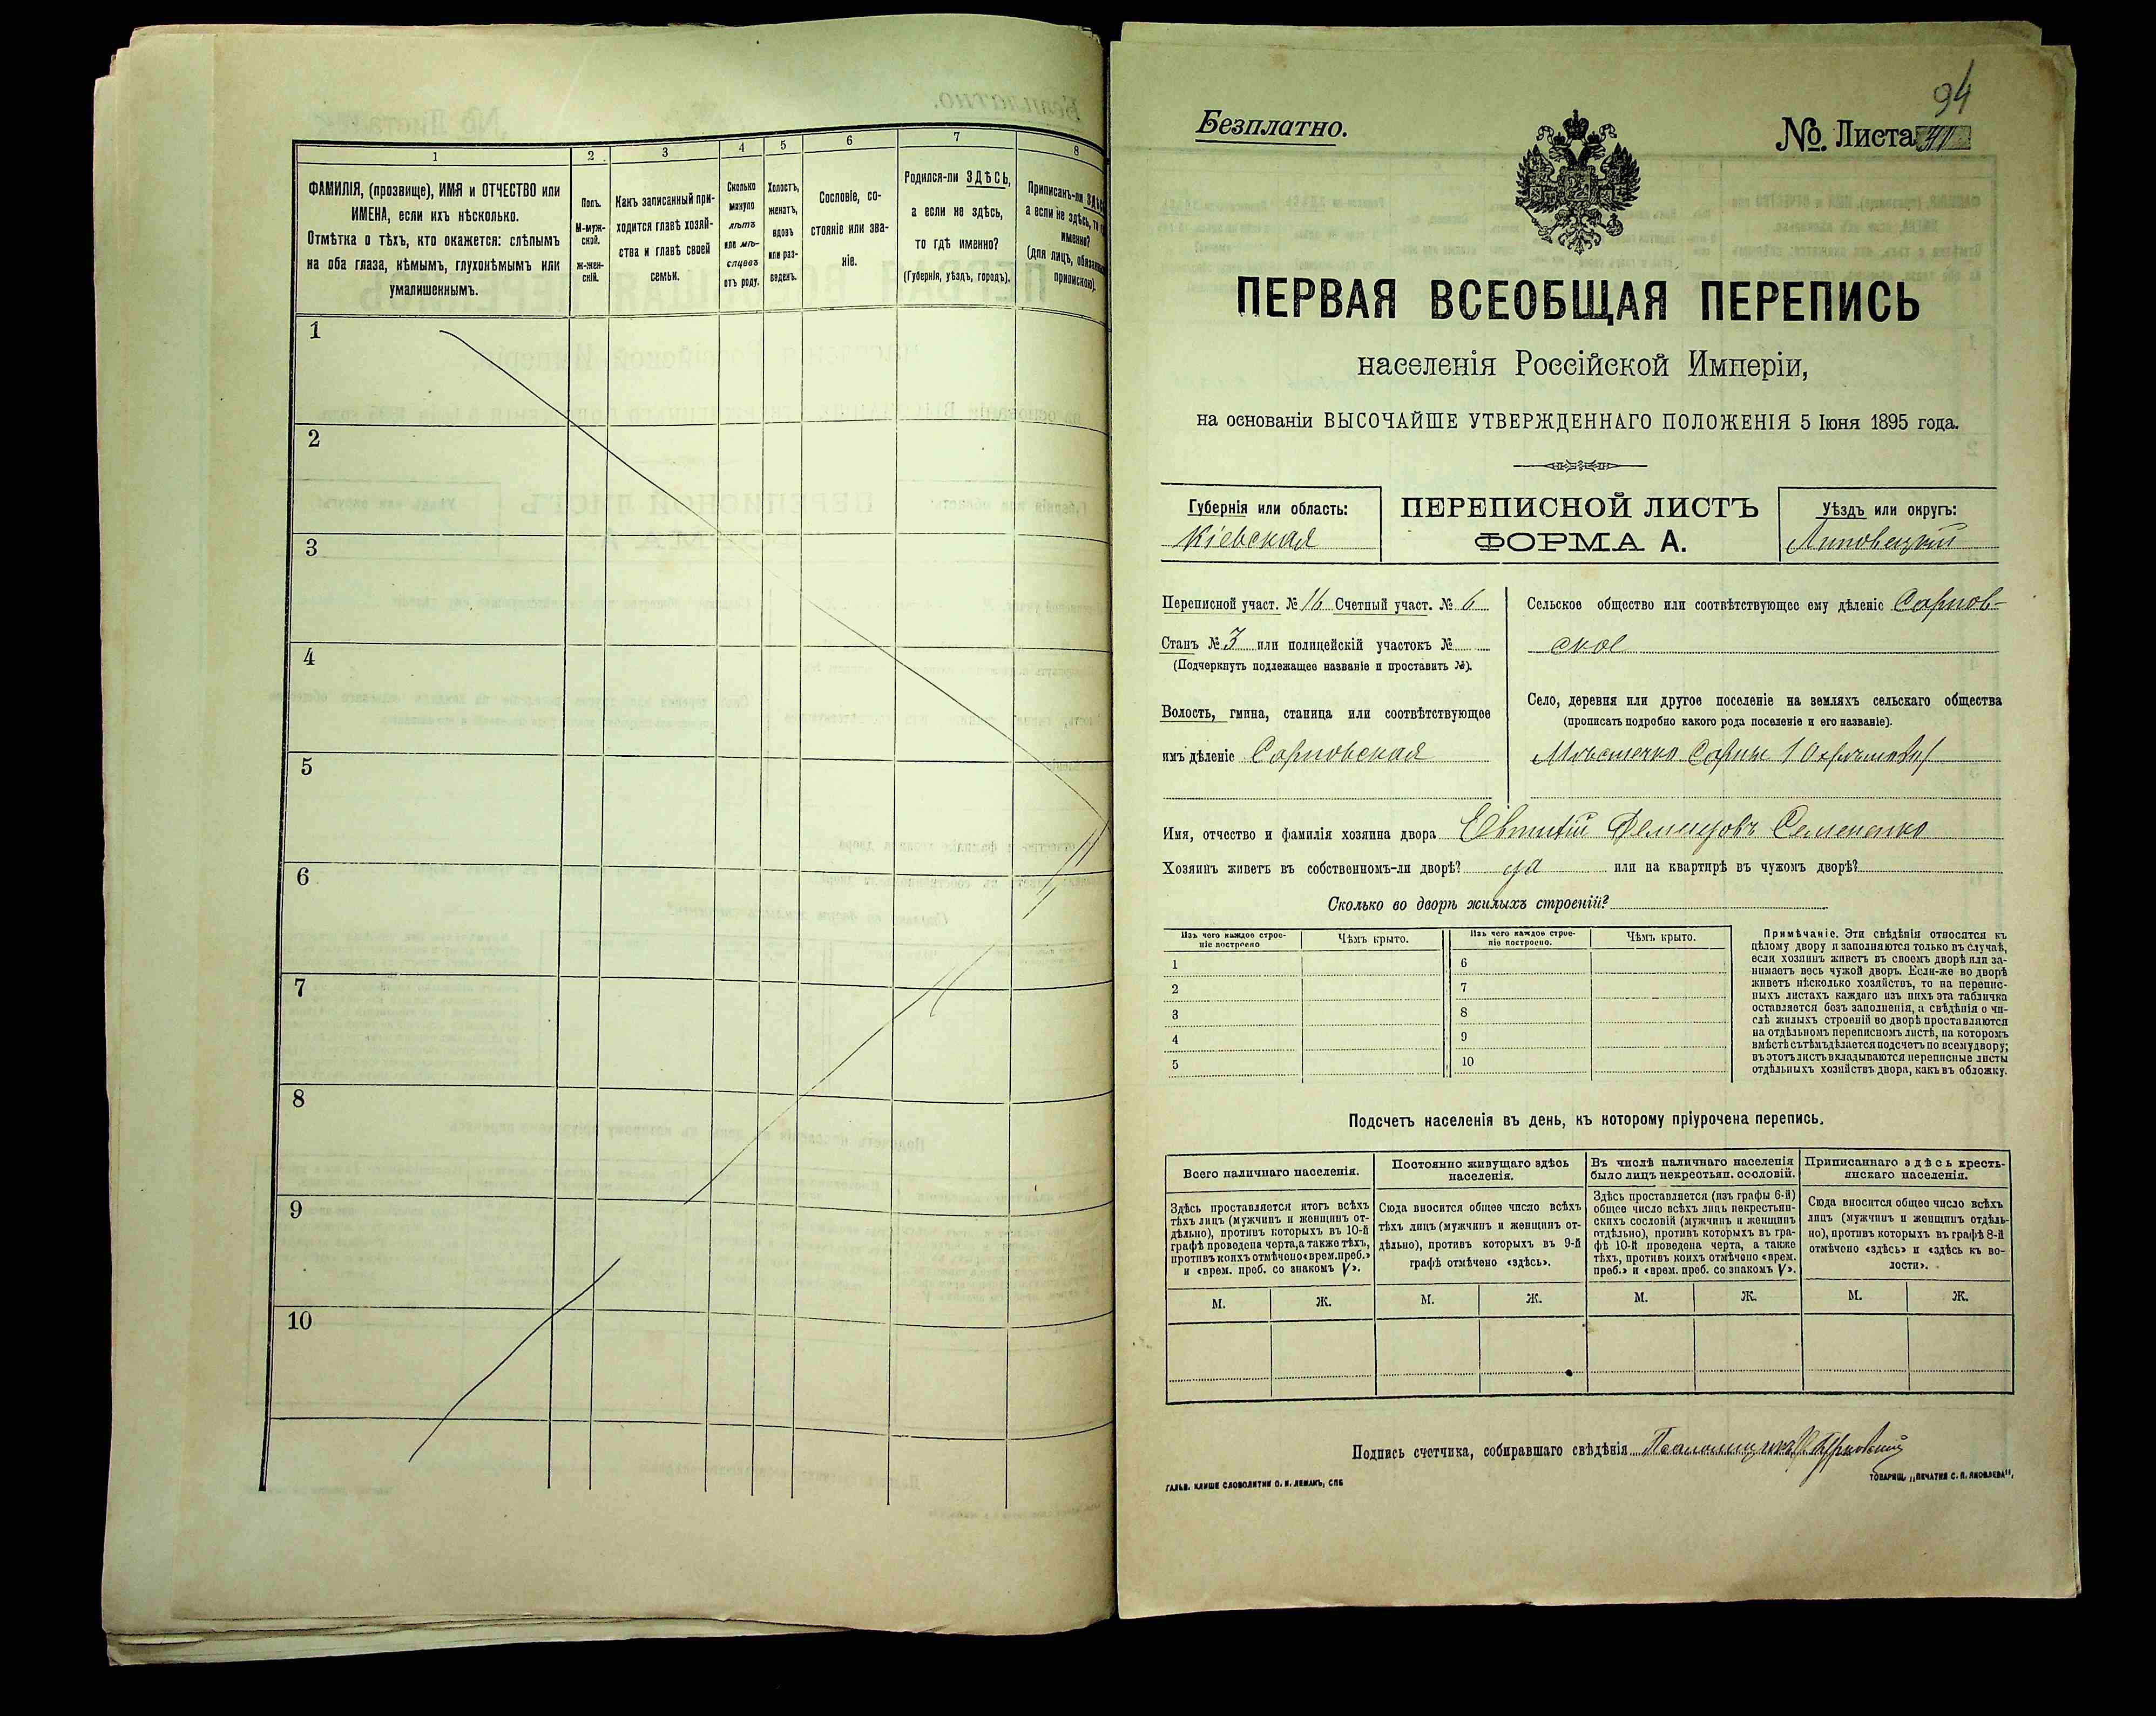 1
2
3
4
5
6
7
8
ФАМИЛІЯ, (прозвище), ИМЯ и ОТЧЕСТВО или
ИМЕНА, если ихъ нѣсколько.
Отмѣтка о тѣхъ, кто окажется: слѣпымъ
на оба глаза, нѣмымъ, глухонѣмымъ или
умалишеннымъ.
Полъ.
М-муж-
ской.
Ж-жен-
скій.
Какъ записанный при-
ходится главѣ хозяй-
ства и главѣ своей
семьи.
Сколько
минуло
лѣтъ
или мѣ-
сяцевъ
отъ роду.
Холостъ,
женатъ,
вдовъ
или раз-
веденъ.
Сословіе, со-
стояніе или зва-
ніе.
Родился-ли ЗДѢСЬ,
а если не здѣсь,
то гдѣ именно?
(Губернія, уѣздъ, городъ).
Приписанъ-ли
а если не здѣсь,
именно?
(для лицъ,
припискою).
1
2
3
4
5
6
7
8
9
10
94
Безплатно.
№ Листа
ПЕРВАЯ ВСЕОБЩАЯ ПЕРЕПИСЬ
населенія Россійской Имперіи,
на основаніи ВЫСОЧАЙШЕ УТВЕРЖДЕННАГО ПОЛОЖЕНІЯ 5 Іюня 1895 года.
Губернія или область:
Кіевская
ПЕРЕПИСНОЙ ЛИСТЪ
ФОРМА А.
Уѣздъ или округъ:
Липовецкій
Переписной участ. № 16 Счетный участ. № 6
Станъ № 3 или полицейскій участокъ №
(Подчеркнуть подлежащее названіе и проставить №).
Волость, гмина, станица или соотвѣтствующее
имъ дѣленіе Сарновская
Сельское общество или соотвѣтствующее ему дѣленіе Сарнов-
ское
Село, деревня или другое поселеніе на земляхъ сельскаго общества
(прописать подробно какого рода поселеніе и его названіе).
Мѣстечко Сарны
Имя, отчество и фамилія хозяина двора Евтихій Деменцовъ Семененко
Хозяинъ живетъ въ собственномъ-ли дворѣ? да или на квартирѣ въ чужомъ дворѣ?
Сколько во дворѣ жилыхъ строеній?
Изъ чего каждое строе-
ніе построено
Чѣмъ крыто.
Изъ чего каждое строе-
ніе построено.
Чѣмъ крыто.
1
2
3
4
5
6
7
8
9
10
Примѣчаніе. Эти свѣдѣнія относятся къ
цѣлому двору и заполняются только въ случаѣ,
если хозяинъ живетъ въ своемъ дворѣ или за-
нимаетъ весь чужой дворъ. Если-же во дворѣ
живетъ нѣсколько хозяйствъ, то на перепис-
ныхъ листахъ каждаго изъ нихъ эта табличка
оставляется безъ заполненія, а свѣдѣнія о чи-
слѣ жилыхъ строеній во дворѣ проставляются
на отдѣльномъ переписномъ листѣ, на которомъ
вмѣстѣ съ тѣмъ дѣлается подсчетъ по всему двору;
въ этотъ листъ вкладываются переписные листы
отдѣльныхъ хозяйствъ двора, какъ въ обложку.
Подсчетъ населенія въ день, къ которому пріурочена перепись.
Всего наличнаго населенія.
Здѣсь проставляется итогъ всѣхъ
тѣхъ лицъ (мужчинъ и женщинъ от-
дѣльно), противъ которыхъ въ 10-й
графѣ проведена черта, а также тѣхъ,
противъ коихъ отмѣчено «врем. преб.»
и «врем. преб. со знакомъ V».
Постоянно живущаго здѣсь
населенія.
Сюда вносится общее число всѣхъ
тѣхъ лицъ (мужчинъ и женщинъ от-
дѣльно), противъ которыхъ въ 9-й
графѣ отмѣчено «здѣсь».
Въ числѣ наличнаго населенія
было лицъ некрестьян. сословій.
Здѣсь проставляется (изъ графы 6-й)
общее число всѣхъ лицъ некрестьян-
скихъ сословій (мужчинъ и женщинъ
отдѣльно), противъ которыхъ въ гра-
фѣ 10-й проведена черта, а также
тѣхъ, противъ коихъ отмѣчено «врем.
преб.» и «врем. преб. со знакомъ V».
Приписаннаго здѣсь кресть-
янскаго населенія.
Сюда вносится общее число всѣхъ
лицъ (мужчинъ и женщинъ отдѣль-
но), противъ которыхъ въ графѣ 8-й
отмѣчено «здѣсь» и «здѣсь къ во-
лости».
М. Ж. М. Ж. М. Ж. М. Ж.
Подпись счетчика, собиравшаго свѣдѣнія
ГАЛЬВ. КЛИШЕ СЛОВОЛИТНИ О. И. ЛЕМАНЪ, СПБ
ТОВАРИЩ. „ПЕЧАТНЯ С. П. ЯКОВЛЕВА",